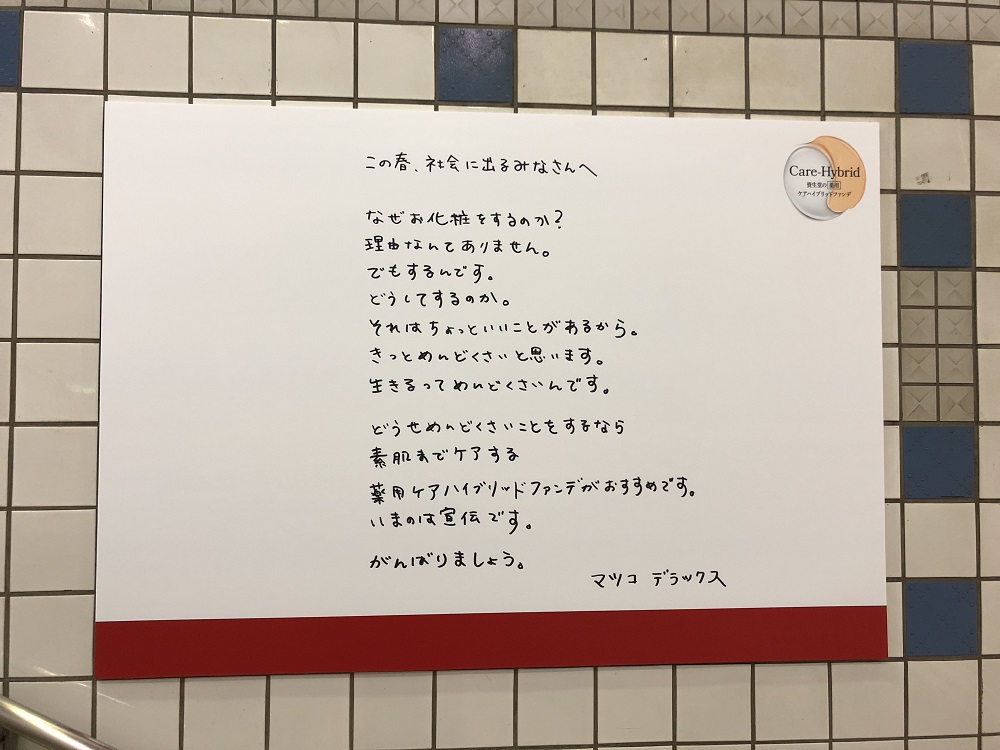 この春、社会に出るみなさんへ
Care-Hybrid
資生堂の薬用
ケアハイブリッドファンデ
なぜお化粧をするのか?
理由なんてありません。
でもするんです。
どうしてするのか。
それはちょっといいことがあるから。
きっとめんどくさいと思います。
生きるってめんどくさいんです。
どうせめんどくさいことをするなら
素肌までケアする
薬用ケアハイブリッドファンデがおすすめです。
いまのは宣伝です。
がんばりましょう。
マツコ デラックス